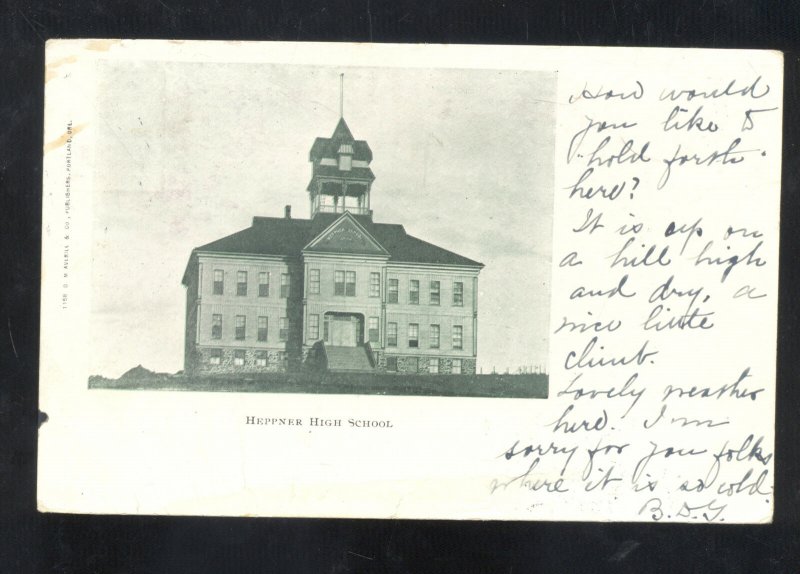 1158 B. M. AVERILL & CO., PUBLISHERS, PORTLAND, ORE.
HEPPNER HIGH SCHOOL
How would
you like to
"hold forth"
here?
It is up on
a hill high
and dry, a
nice little
climb.
Lovely weather
here. I'm
sorry for you folks
where it is so cold.
B.D.G.